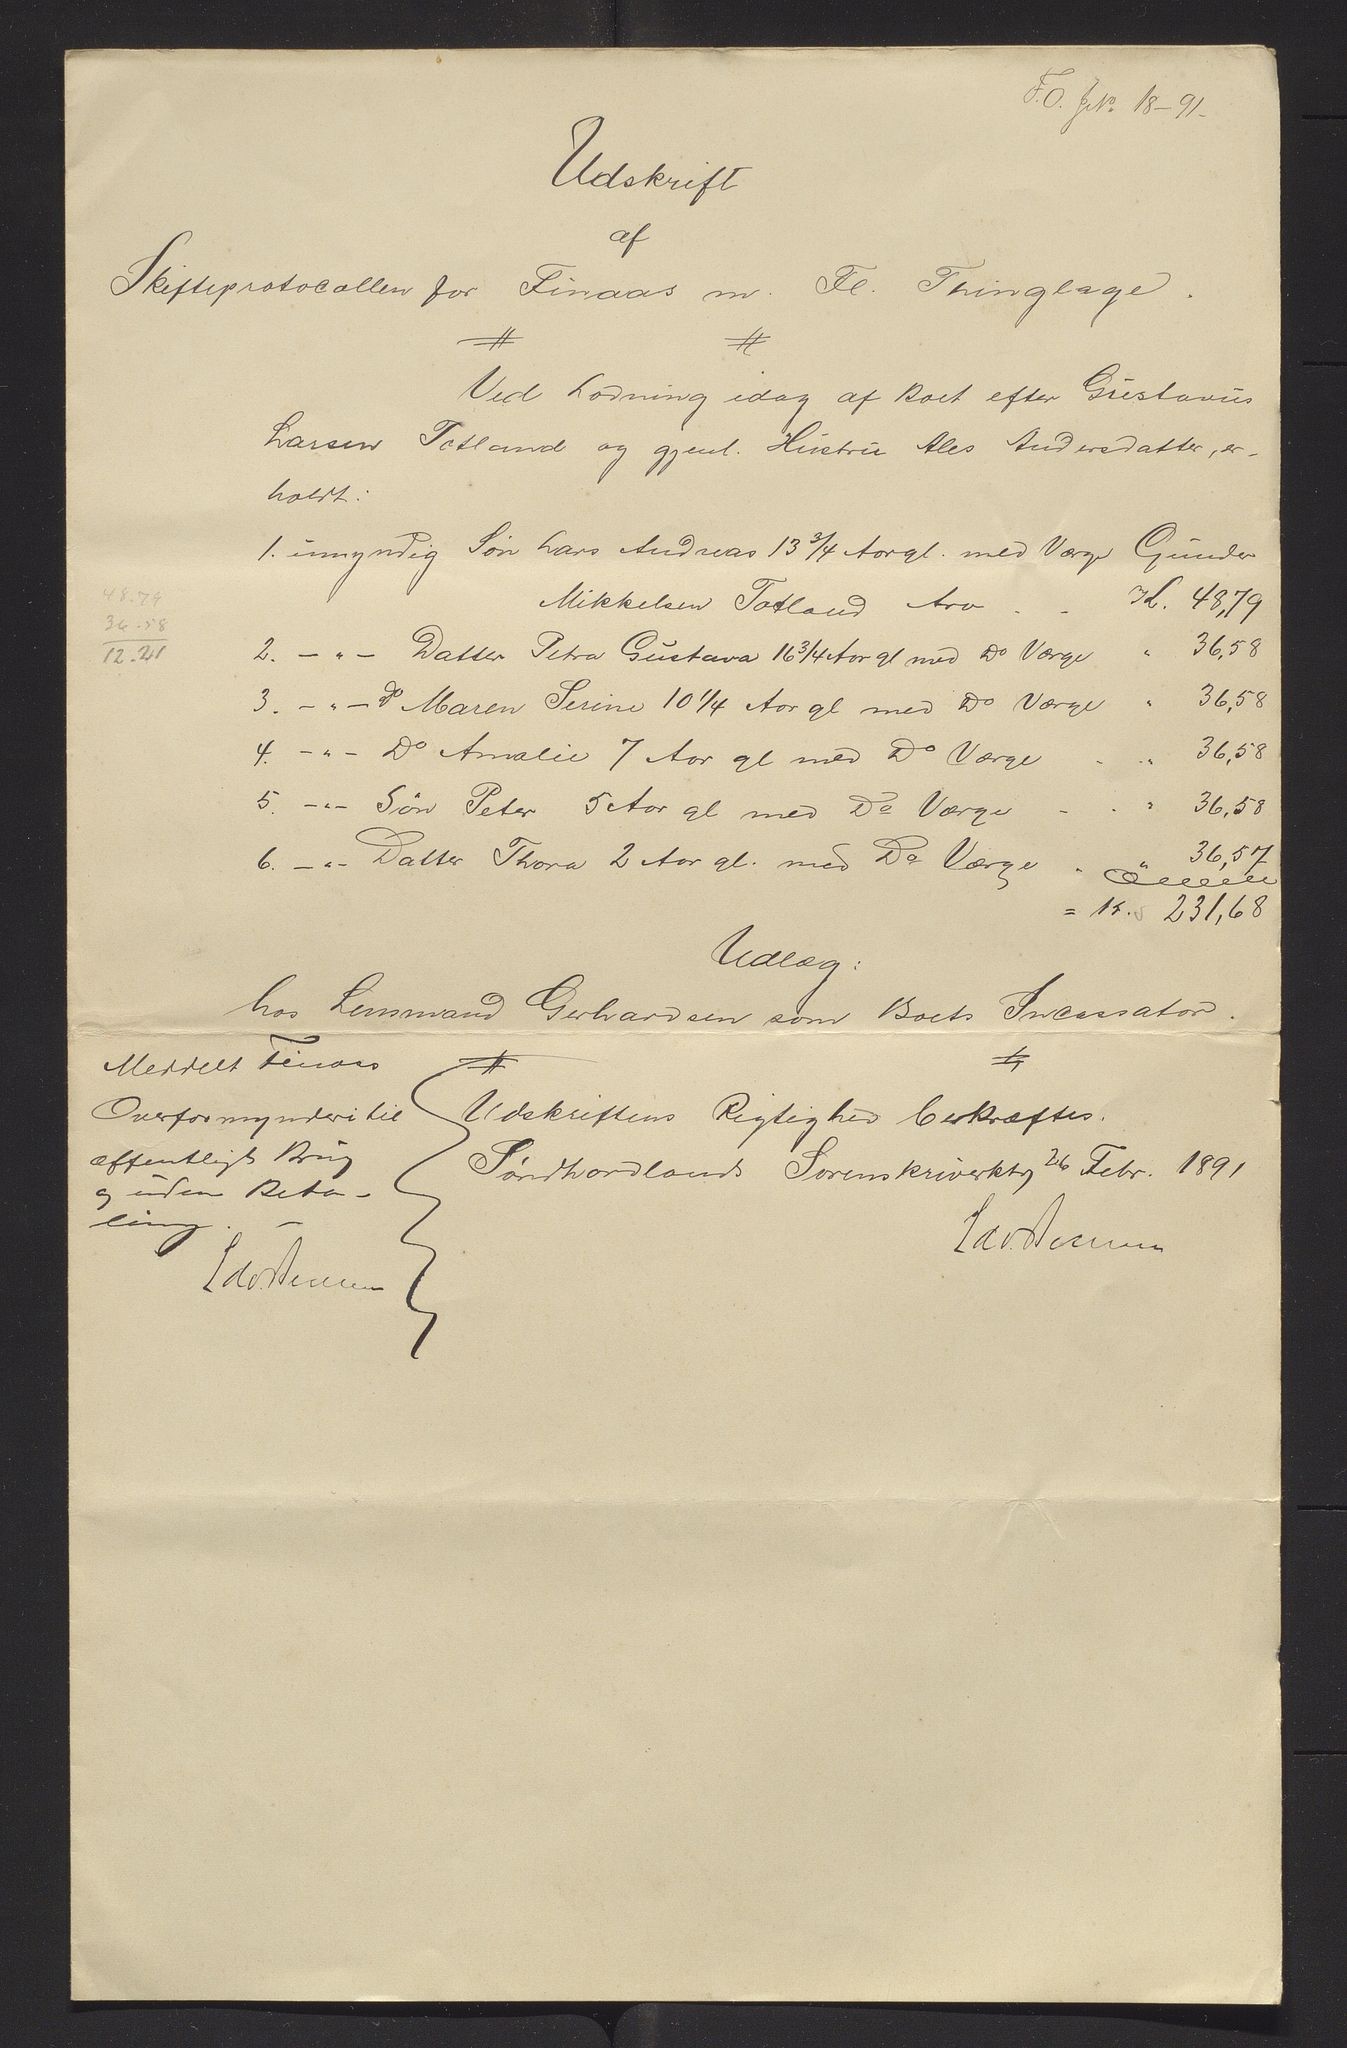 F.O. 18-91-
Udskrift
af
Skifteprotocollen for Finaas m. Fl. Thinglage.
Ved Lodning idag af Boet efter Gustavus
Larsen Totland og gjenl. Hustru Ales Andersdatter, er-
holdt:
1. umyndig Søn Lars Andreas 13 3/4 Aar gl. med Værge Gunder
Mikkelsen Totland Arv - - Kr. 48,79
48.79
36.58
12.21
2. - " - Datter Petra Gustava 16 3/4 Aar gl med Do Værge " 36,58
3. - " - Do Maren Serine 10 1/4 Aar gl med Do Værge " 36,58
4. - " - Do Amalie 7 Aar gl med Do Værge - " 36,58
5. - " - Søn Peter 5 Aar gl med Do Værge - - " 36,58
6. - " - Datter Thora 2 Aar gl. med Do Værge - " 36,57
= Kr. 231,68
Udlæg:
hos Lensmand Gerhardsen som Boets Incassator.
Meddelt Finaas
Overformynderi til
offentligt Brug
og uden Beta-
ling. -
Udskriftens Rigtighed bekræftes.
Søndhordlands Sorenskriverkty 26 Febr. 1891